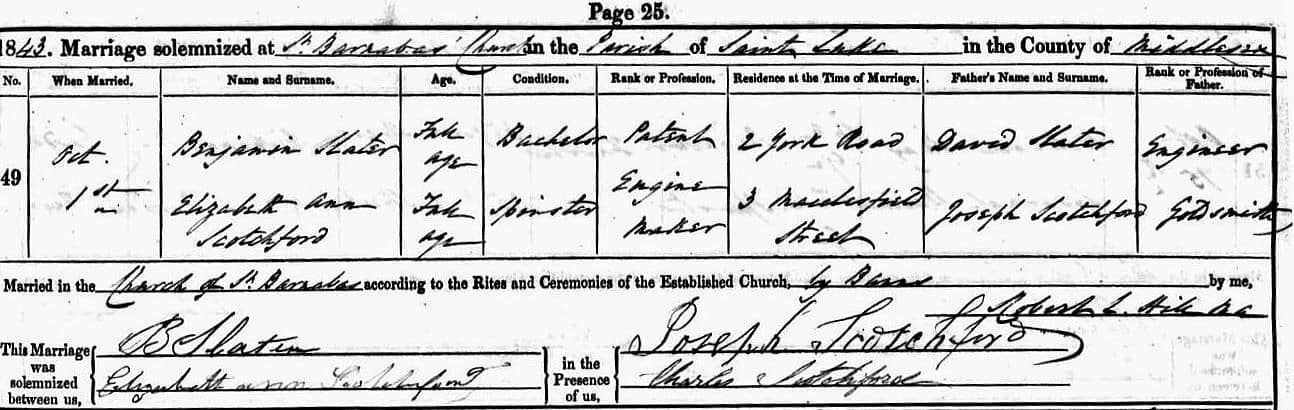 Page 25.
1843. Marriage solemnized at St Barnabas' Church in the Parish of Saint Luke in the County of Middlesex
No. When Married. Name and Surname. Age. Condition. Rank or Profession. Residence at the Time of Marriage. Father's Name and Surname. Rank or Profession of Father.
49 Oct. 1st Benjamin Slater Full age Bachelor Patent Engine Maker 2 York Road David Slater Engineer
Elizabeth Ann Scotchford Full age Spinster 3 Macclesfield Street Joseph Scotchford Goldsmith
Married in the Church of St Barnabas according to the Rites and Ceremonies of the Established Church, by Banns by me,
Robert L. Hill
This Marriage was solemnized between us, B Slater Elizabeth ann Scotchford
in the Presence of us, Joseph Scotchford Charles Scotchford